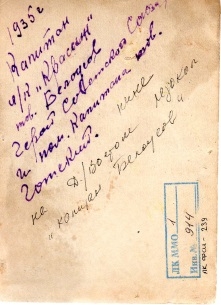 1935 г
Капитан
л/п "Красин"
тов. Белоусов
Герой Советского Союза,
и пом. капитана тов.
Готский.
на Д/Востоке ныне ледокол
"капитан Белоусов"
ЛК ММО 1
Инв. № 914
ЛК ФСИ - 239